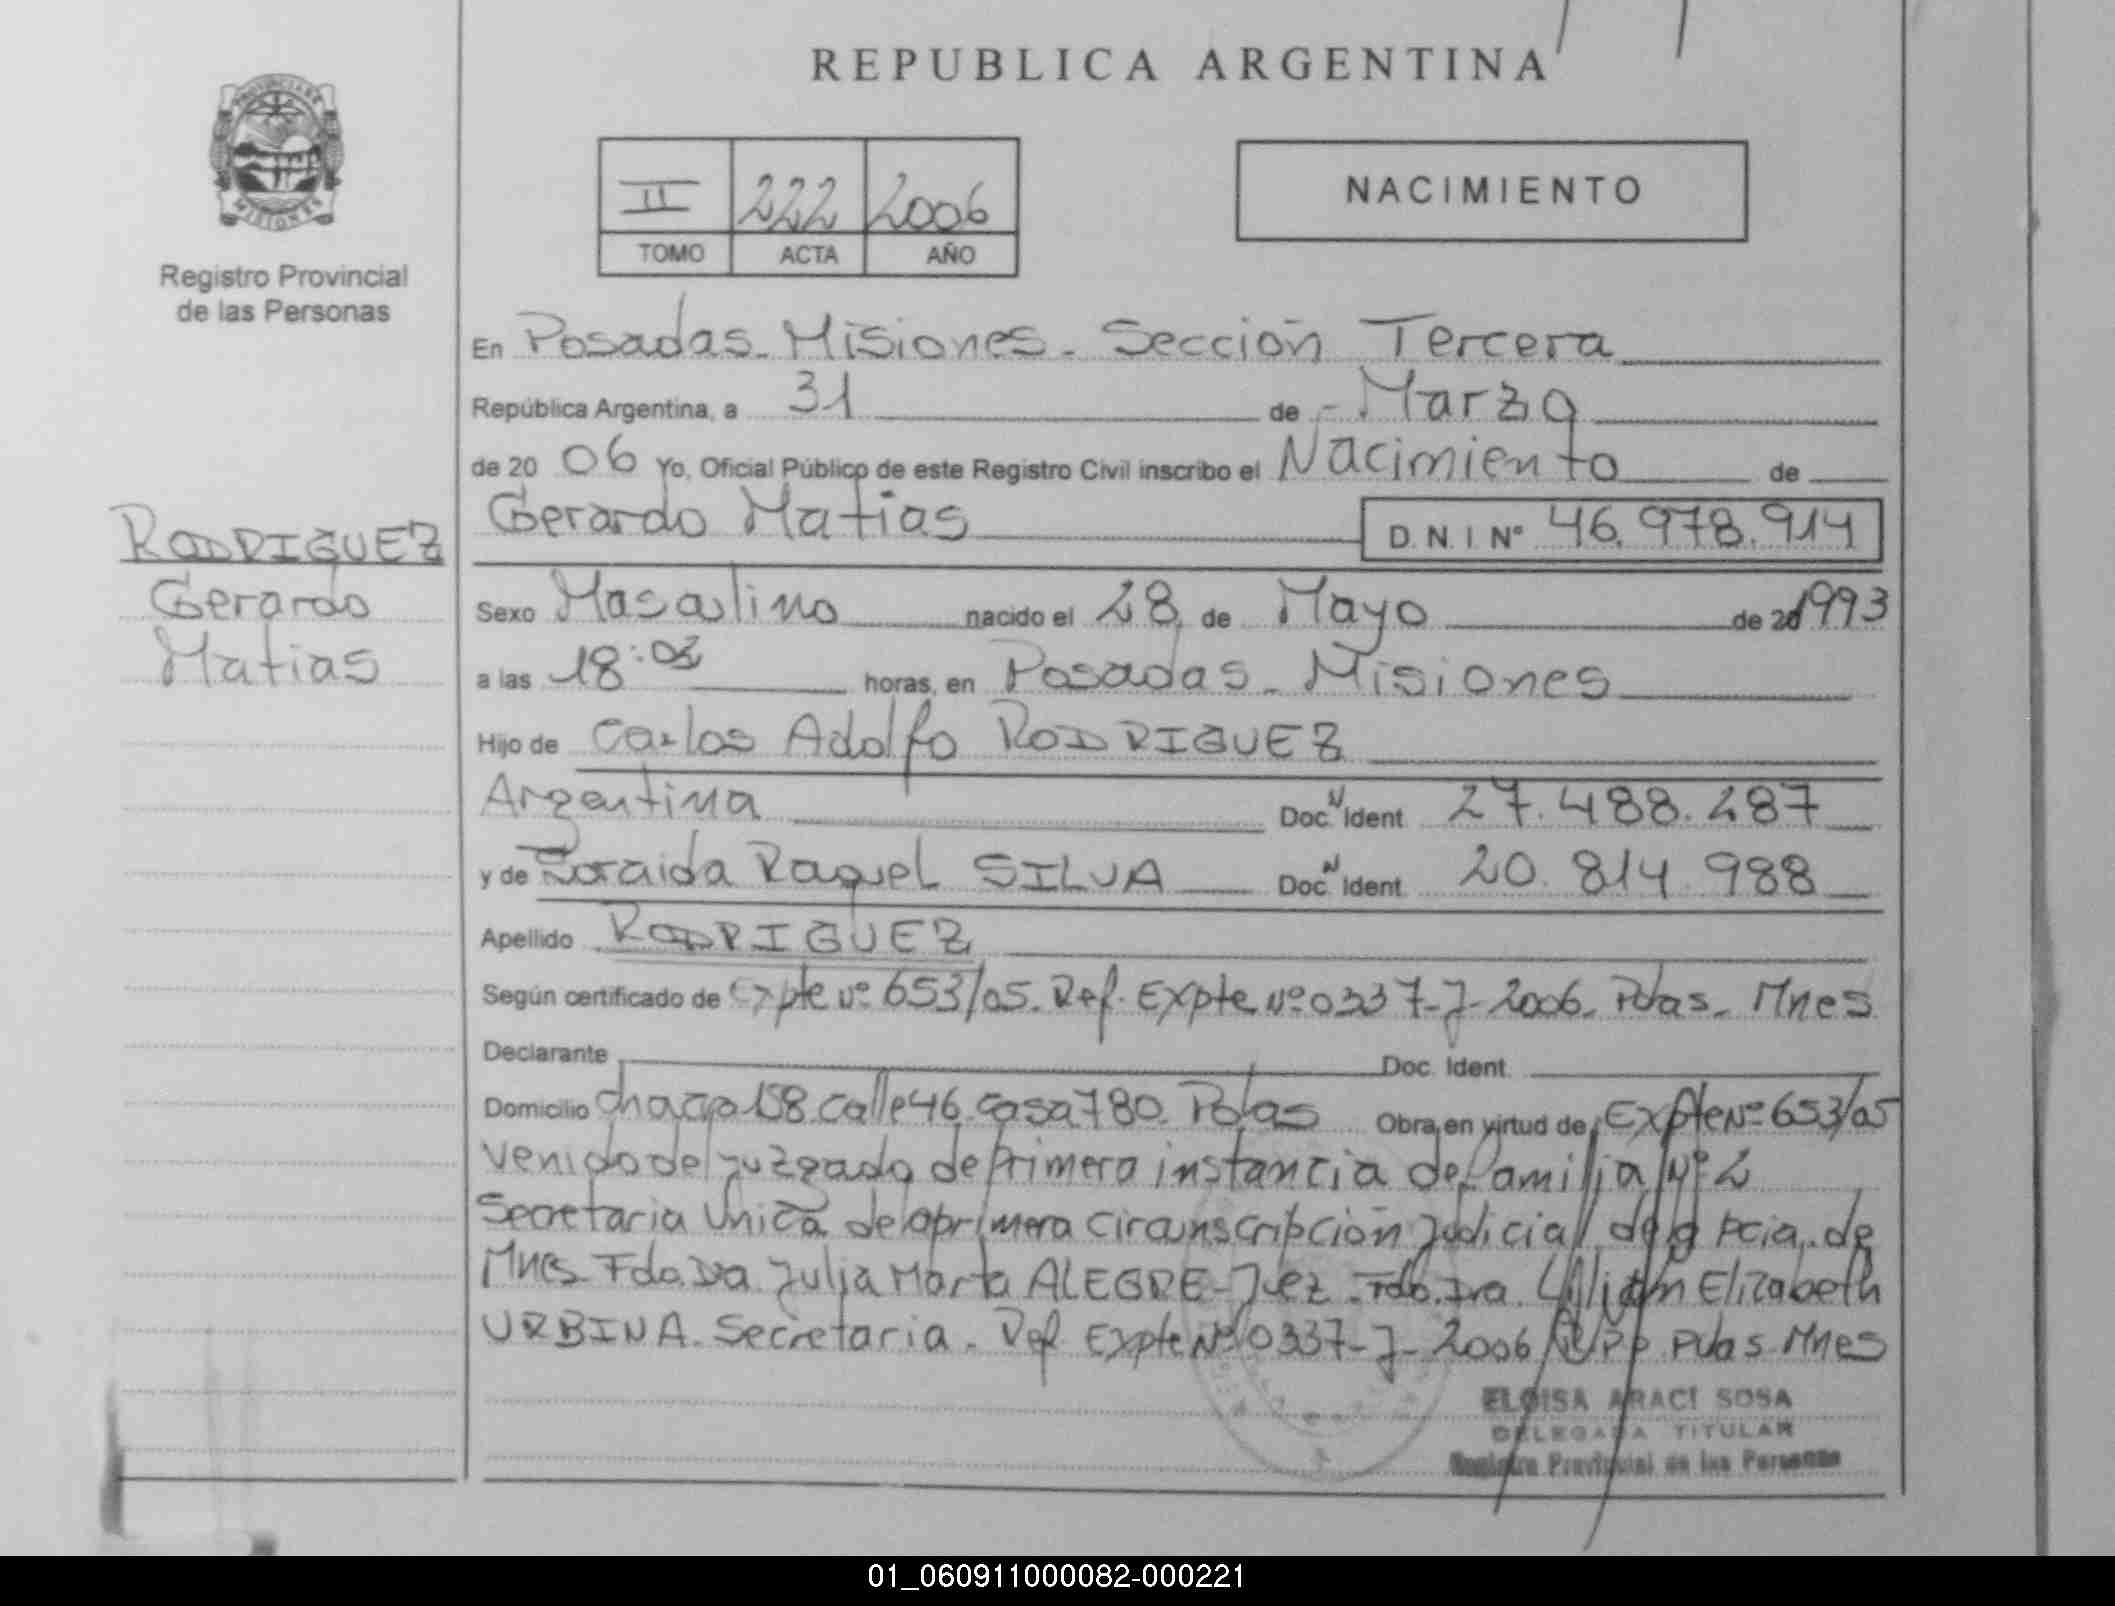 REPUBLICA ARGENTINA
PROVINCIA DE
MISIONES
Registro Provincial
de las Personas
II 222 2006
TOMO ACTA AÑO
NACIMIENTO
En Posadas. Misiones. Sección Tercera
República Argentina, a 31 de Marzo
de 20 06 Yo, Oficial Público de este Registro Civil inscribo el Nacimiento de
Gerardo Matias D.N.I. Nº 46.978.914
RODRIGUEZ
Gerardo
Matias
Sexo Masculino nacido el 28 de Mayo de 20 1993
a las 18:03 horas, en Posadas. Misiones
Hijo de Carlos Adolfo RODRIGUEZ
Argentina Doc. N Ident. 27.488.287
y de Zoraida Raquel SILVA Doc. N Ident. 20.814.988
Apellido RODRIGUEZ
Según certificado de Expte Nº 653/05. Ref. Expte Nº 0337-J-2006. Pdas. Mnes
Declarante Doc. Ident.
Domicilio chacra 158 calle 46 casa 780. Pdas Obra en virtud de Expte Nº 653/05
Venido del juzgado de Primera instancia de Familia Nº 2
Secretaria Unica de la primera circunscripción judicial de la Pcia. de
Mnes. Fdo. Dra. Julia Marta ALEGRE - Juez. Fdo. Dra. Liliam Elizabeth
URBINA. Secretaria. Ref. Expte Nº 0337-J-2006 Pdas. Mnes
ELOISA ARACI SOSA
DELEGADA TITULAR
Registro Provincial de las Personas
01_060911000082-000221